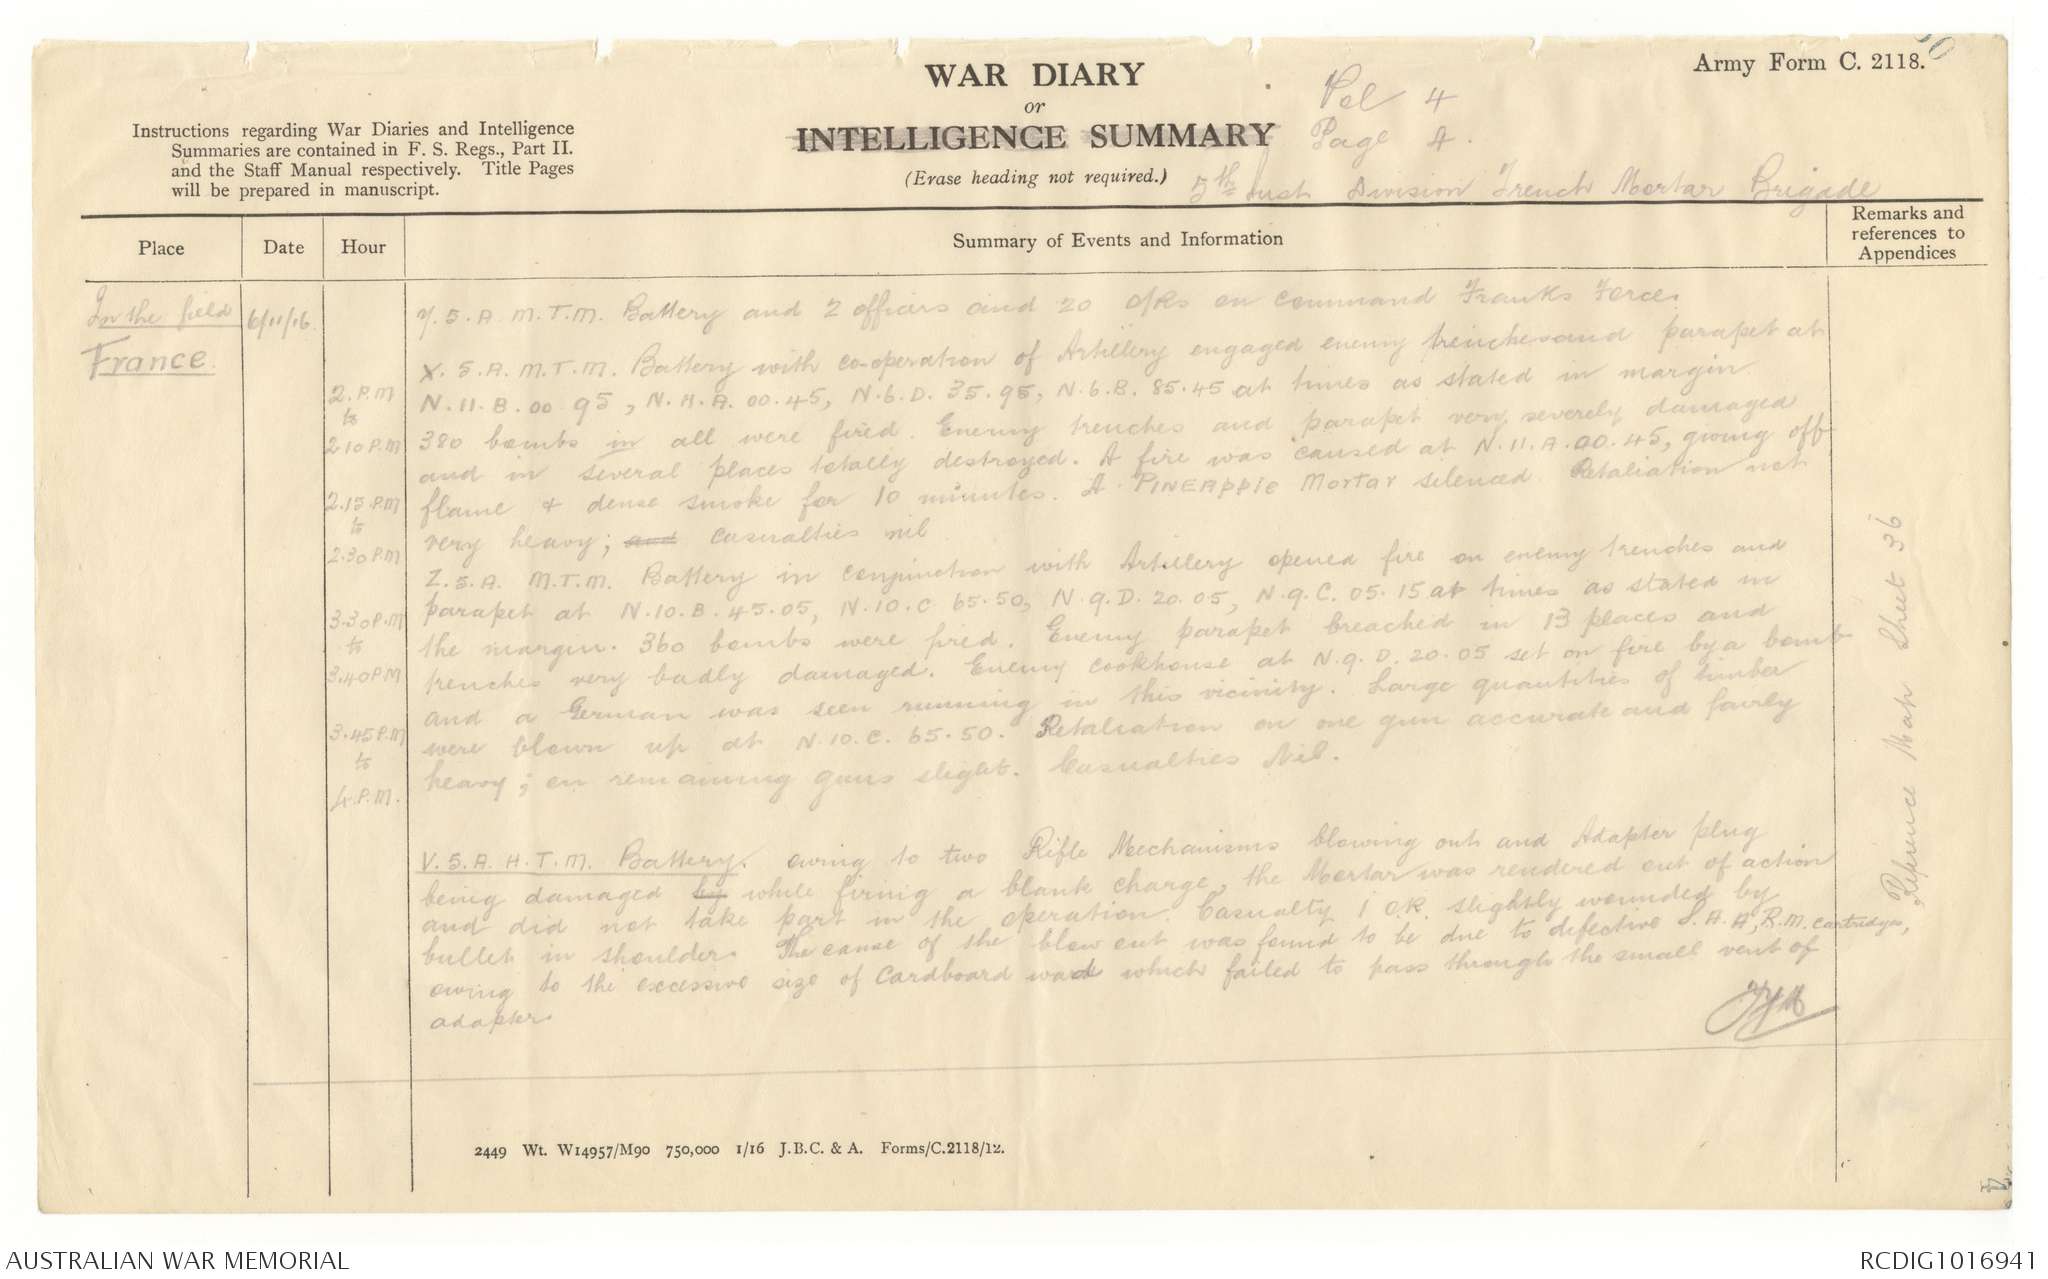 Army Form C. 2118.
WAR DIARY
or
INTELLIGENCE SUMMARY
(Erase heading not required.)
Vol 4
Page 4.
5th Aust Division Trench Mortar Brigade
Instructions regarding War Diaries and Intelligence
Summaries are contained in F. S. Regs., Part II.
and the Staff Manual respectively. Title Pages
will be prepared in manuscript.
Place
Date
Hour
Summary of Events and Information
Remarks and
references to
Appendices
In the field
France.
6/11/16.
Y.5.A. M.T.M. Battery and 2 officers and 20 o/Rs on command Franks Force.
X.5.A. M.T.M. Battery with co-operation of Artillery engaged enemy trenches and parapet at
N.11.B.00 95, N.11.A.00.45, N.6.D.35.95, N.6.B.85.45 at times as stated in margin.
380 bombs in all were fired. Enemy trenches and parapet very severely damaged
and in several places totally destroyed. A fire was caused at N.11.A.00.45, giving off
flame & dense smoke for 10 minutes. A PINEApple Mortar silenced. Retaliation not
very heavy; and casualties nil
2.P.M
to
2.10 P.M
2.15.P.M
to
2.30 P.M
3.30P.M
to
3.40PM
3.45P.M
to
4.P.M.
Z.5.A. M.T.M. Battery in conjunction with Artillery opened fire on enemy trenches and
parapet at N.10.B.45.05, N.10.C 65.50, N.9.D.20.05, N.9.C.05.15 at times as stated in
the margin. 360 bombs were fired. Enemy parapet breached in 13 places and
trenches very badly damaged. Enemy cookhouse at N.9.D.20.05 set on fire by a bomb
and a German was seen running in this vicinity. Large quantities of timber
were blown up at N.10.C.65.50. Retaliation on one gun accurate and fairly
heavy; on remaining guns slight. Casualties Nil.
V.5.A.H.T.M. Battery. owing to two Rifle Mechanisms blowing out and Adapter plug
being damaged by while firing a blank charge, the Mortar was rendered out of action
and did not take part in the operation. Casualty 1 O.R. slightly wounded by
bullet in shoulder. The cause of the blow out was found to be due to defective S.A.A, R.M. cartridges,
owing to the excessive size of cardboard wad which failed to pass through the small vent of
adapter.
Reference Map Sheet 36
2449 Wt. W14957/M90 750,000 1/16 J.B.C. & A. Forms/C.2118/12.
AUSTRALIAN WAR MEMORIAL
RCDIG1016941